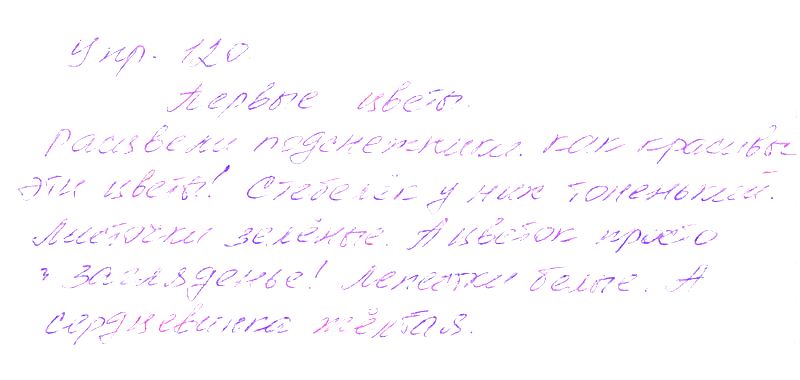 Упр. 120
Первые цветы.
Расцвели подснежники. Как красивы
эти цветы! Стебелёк у них тоненький.
Листочки зелёные. А цветок просто
загляденье! Лепестки белые. А
сердцевинка жёлтая.